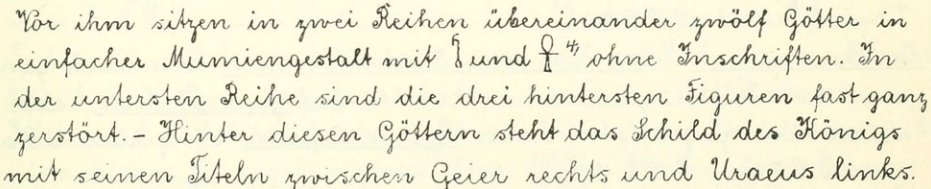 Vor ihm sitzen in zwei Reihen übereinander zwölf Götter in
einfacher Mumiengestalt mit 𓋾 und 𓋹 4) ohne Inschriften. In
der untersten Reihe sind die drei hintersten Figuren fast ganz
zerstört. – Hinter diesen Göttern steht das Schild des Königs
mit seinen Titeln zwischen Geier rechts und Uraeus links.